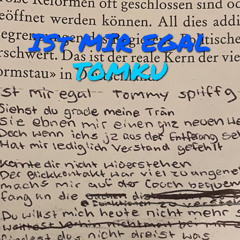 große Reformen oft geschlossen sind od
geöffnet werden können. All dies addi
IST MIR EGAL
TOMKU
rschwert. Das ist der reale Kern der vie
ormstau» in
Ist mir egal Tommy spliffg
Siehst du grade meine Trän
Sie ebnen mir einen ganz neuen We
Doch wenn ichs jz aus der Entfernung se
Hat mir lediglich Verstand gefehlt
Konnte dir nicht widerstehen
Der Blickkontakt war viel zu angeneh
machs mir auf der Couch beque
fang an die
Du willst mich heute nicht mehr s
das nicht dreist was